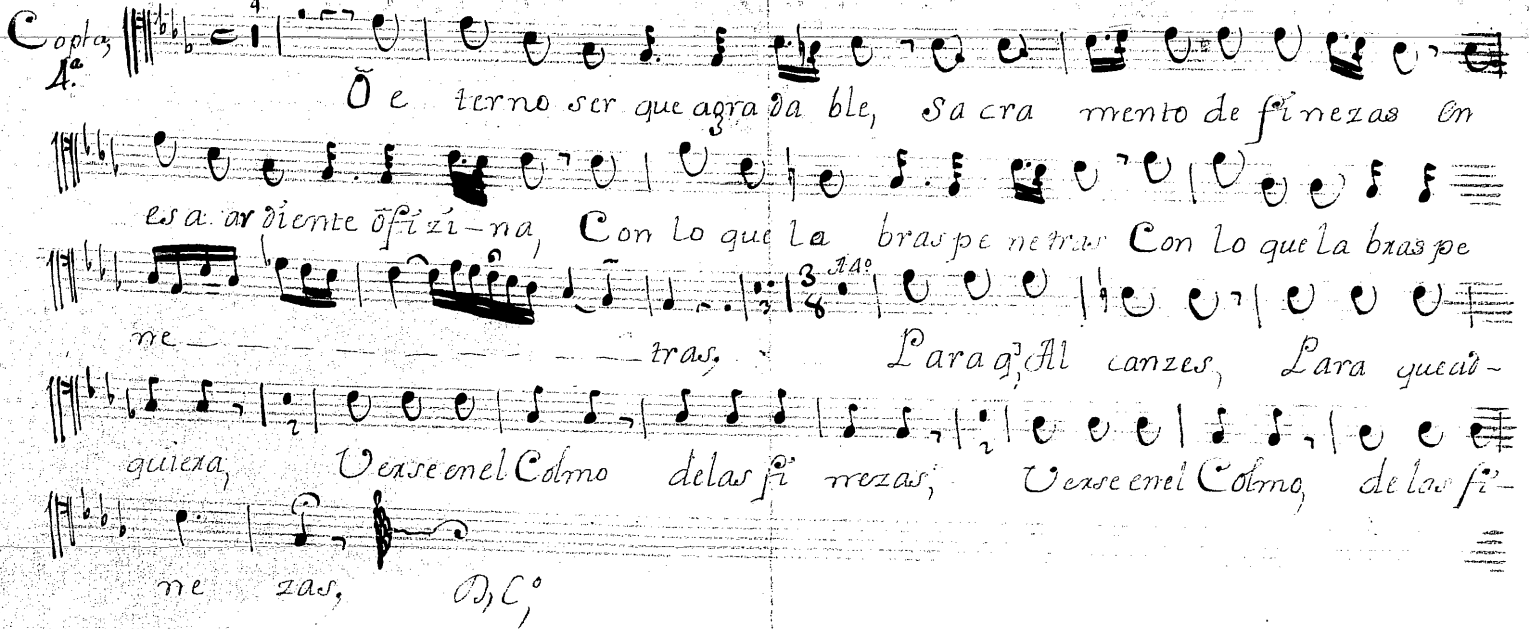 Copla,
4.ª
4
Ō e terno ser que agra da ble, Sa cra mento de finezas en
3
esa ardiente ofizi-na, Con lo que la bras pe netras Con lo que la bras pe
3 3/8 Ad.º
ne tras, Para q̃, Al canzes, Para que ad-
2 2
quiera, Verse en el Colmo de las fi nezas, Verse en el Colmo, de las fi-
ne zas, D, C,º